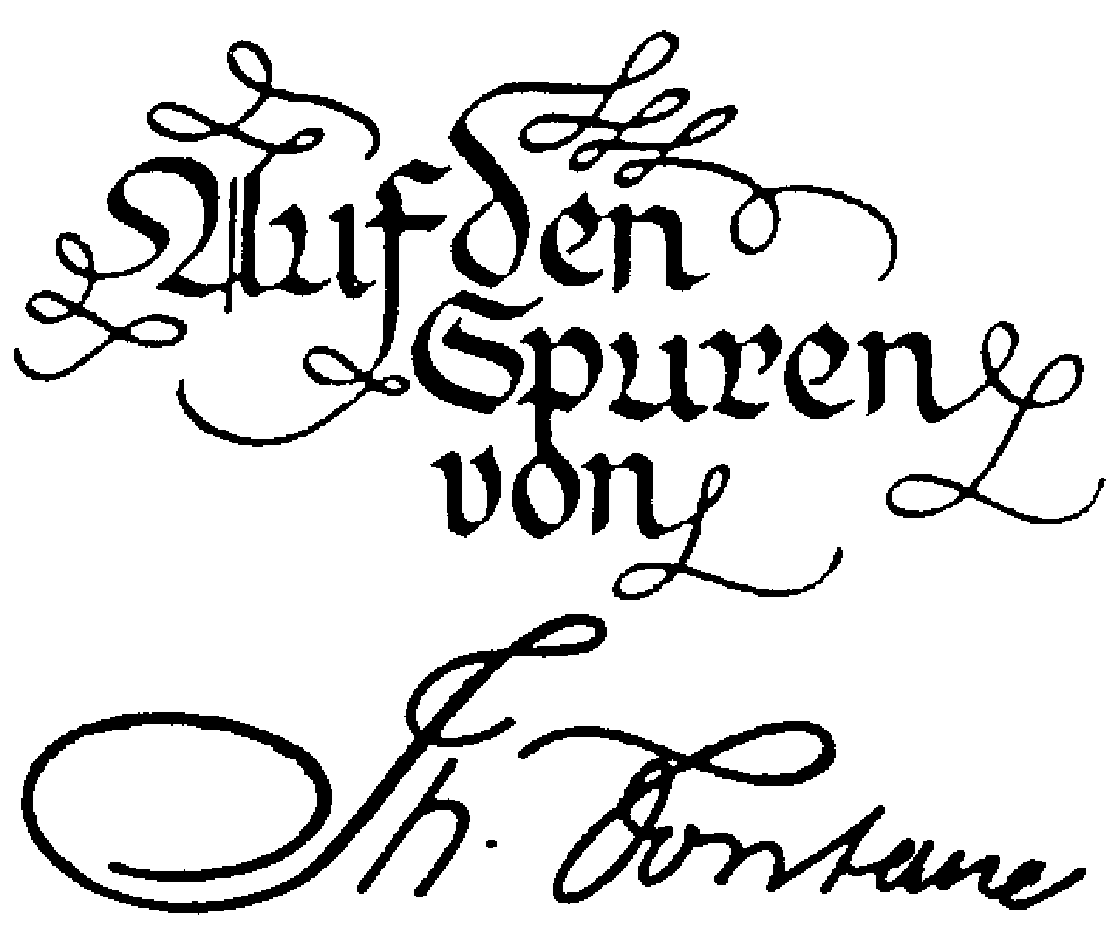 Auf den
Spuren
von
Th. Fontane